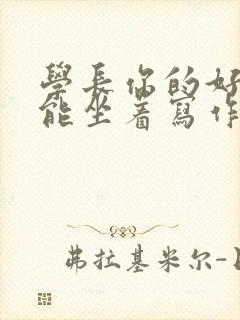 學長你的好
能坐着寫作
弗拉基米尔-